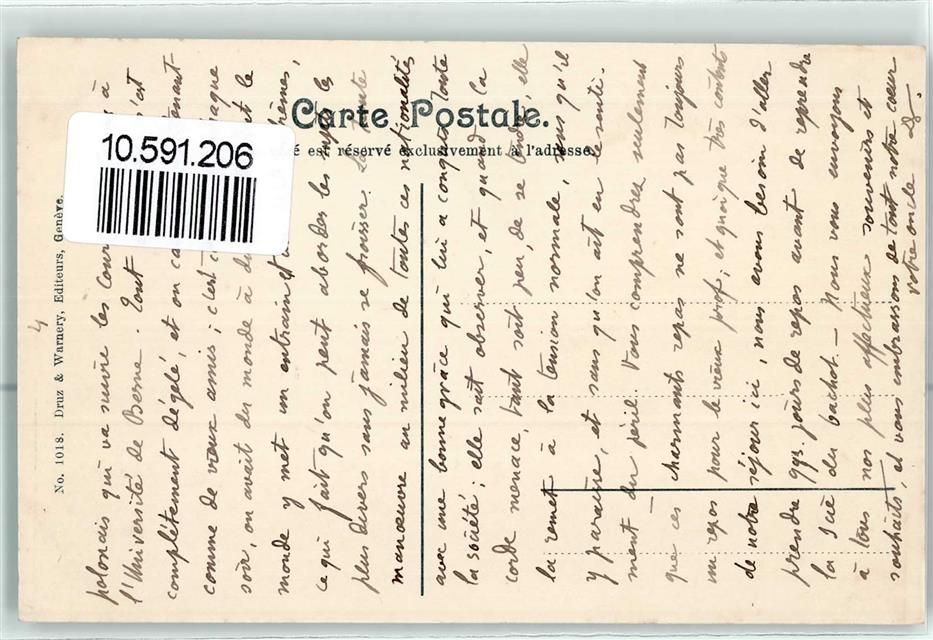 Carte Postale.
é est réservé exclusivement à l'adresse.
10.591.206
No. 1018. Druz & Warnery, Editeurs, Genève.
4
polonais qui va suivre les cour à
l'Université de Berne. Tout s'est
complètement dégelé, et on ca tenant
comme de vieux amis; c'est c aque
soir, on avait du monde à d t le
monde y met un entrain et mêmes,
ce qui fait qu'on peut aborder les les
plus divers sans jamais se froisser. La tante
manœuvre au milieu de toutes ces nationalités
avec une bonne grâce qui lui a conquis toute
la société; elle sait observer, et quand la
corde menace, tant soit peu, de se tendre, elle
la remet à la tension normale, sans qu'il
y paraisse, et sans qu'on ait en le senti-
ment du péril. Vous comprendrez seulement
que ces charmants repas ne sont pas toujours
un repos pour le vieux prof; et quoique très content
de notre séjour ici, nous avons besoin d'aller
prendre qqs. jours de repos avant de reprendre
la scie du bachot. — Nous vous envoyons
à tous nos plus affectueux souvenirs et
souhaits, et vous embrassons de tout notre cœur
votre oncle D.